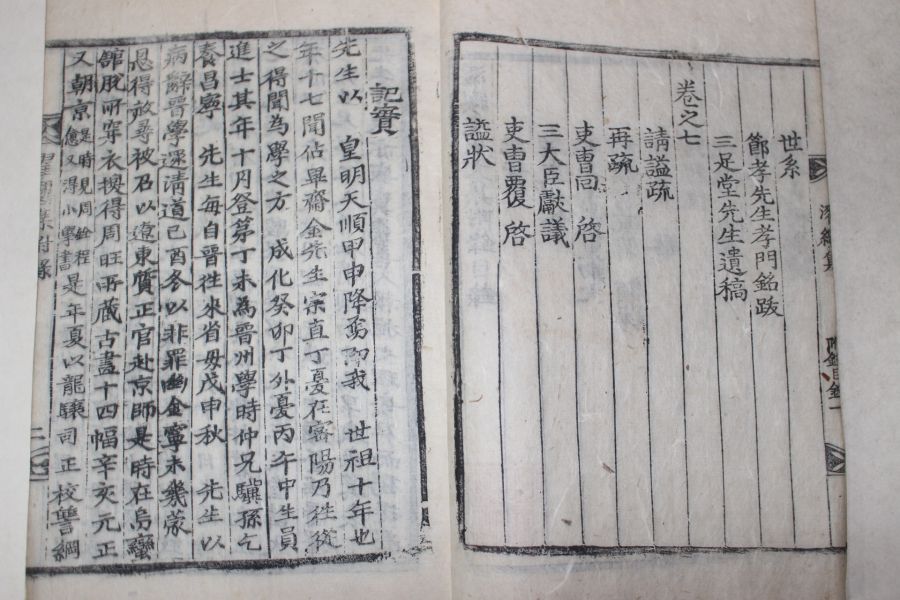 濯纓集
附錄目錄 一
卷之七
世系
節孝先生孝門銘跋
三足堂先生遺稿
請諡疏
再疏
吏曹回 啓
三大臣獻議
吏曹覆 啓
諡狀
記實
先生以 皇明天順甲申降 即我 世祖十年也
年十七聞佔畢齋金先生宗直丁憂在密陽乃往從
之得聞為學之方 成化癸卯丁外憂丙午中生員
進士其年十月登第丁未為晉州學時仲兄驥孫乞
養昌寧 先生每自晉往來省母戊申秋 先生以
病辭晉學還清道己酉冬以非罪幽金寧未幾蒙
恩得放尋被召以遼東質正官赴京師是時在烏蠻
館脫所穿衣換得周旺所藏古畫十四幅辛亥元正
又朝京是時見周銓程愈又得小學書是年夏以龍驤司正校讐綱
濯纓集附錄 二